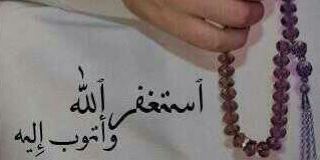 أستغفر الله
وأتوب إليه